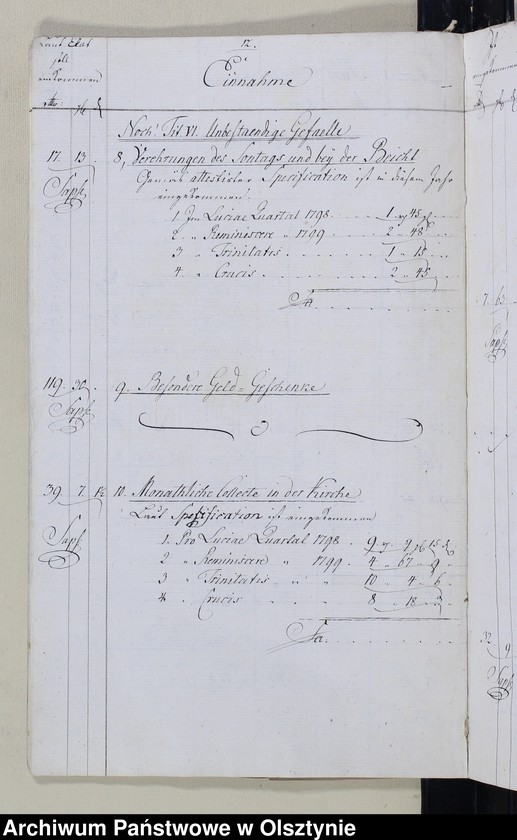 12.
Laut Etat
soll
einkommen
Einnahme
Noch Tit VI. Unbestaendige Gefaelle
17. 13. 8, Verehrungen des Sontags und bey der Beicht
Gemäs attestirter Specification ist in diesem Jahr
eingekommen
1. Im Luciae Quartal 1798. 1 45
2 „ Reminiscere „ 1799 2 48
3 „ Trinitatis 1 15
4. „ Crucis 2 45
Sa
7. 63
119. 30. 9. Besondere Geld-Geschenke
39. 7. 1½ 10. Monathliche Collecte in der Kirche
Laut Specification ist eingekommen
1. Pro Luciae Quartal 1798. 9 15
2 „ Reminiscere „ 1799. 4 67 9
3 „ Trinitatis „ „ 10 4 6
4. Crucis 8 18 3
Sa.
32 9
Archiwum Państwowe w Olsztynie